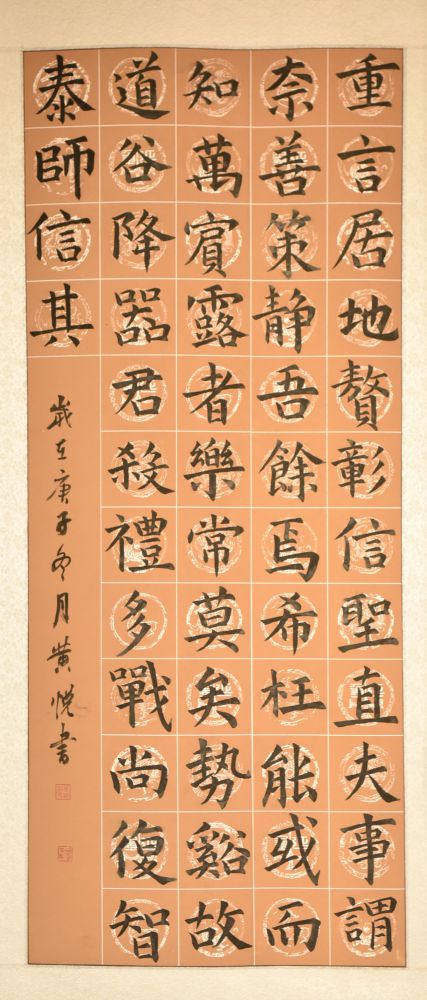 重言居地贅彰信聖直夫事謂
奈善策靜吾餘焉希枉能或而
知萬賓露者樂常莫矣勢谿故
道谷降器君殺禮多戰尚復智
泰師信其
歲在庚子冬月黄悦書